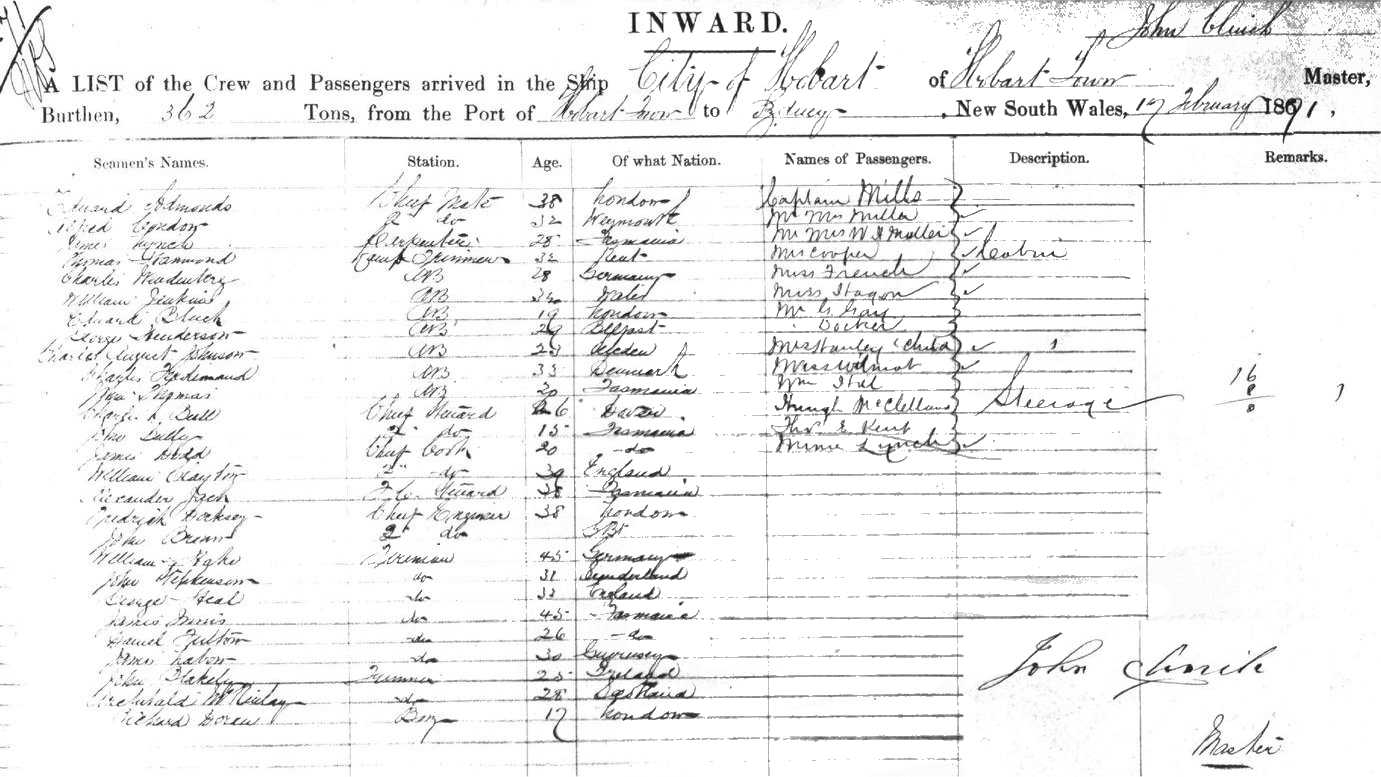 INWARD.
John Clinch
A LIST of the Crew and Passengers arrived in the Ship City of Hobart of Hobart Town Master,
Burthen, 362 Tons, from the Port of Hobart Town to Sydney, New South Wales, 17 February 1871,
Seamen's Names. Station. Age. Of what Nation. Names of Passengers. Description. Remarks.
Edward Edmonds Chief Mate 38 London Captain Mills
Alfred Condon 2 do 32 Weymouth Mr Mrs Miller
James Lynch Carpenter 28 Tasmania Mr Mrs W
Thomas Hammond 32 Kent Mrs Cooper Cabin
Charles AB 28 Germany Miss French
William Jenkins AB Wales Miss
Edward Black AB 19 London Mr G Gay
George Henderson AB 29 Belfast
Charles August Johnson AB 23 Sweden Mrs Hanley Child
Charles AB 33 Denmark Miss Wilmot
John Thomas AB 20 Tasmania Wm
Charles A Bull Chief Steward 26 Hough McClelland Steerage 16
John 2 do 15 Tasmania Thos E Kent 8
James Dodd Chief Cook 20 do Lynch 8
William Clayton 2 do 39 England
Alexander Jack F.C. Steward 38 Tasmania
Fredrick Chief Engineer 38 London
John Brown 2 do
William Fireman 45 Germany
John Stephenson do 31 Sunderland
George Heal do 33 England
James Innis do 45 Tasmania
Daniel Fulton do 26 do
James do 30 Guernsey
John Blakely Trimmer 25 Ireland
Archibald McKinlay do 28 Scotland
Richard Doran Boy 17 London
John Clinch
Master